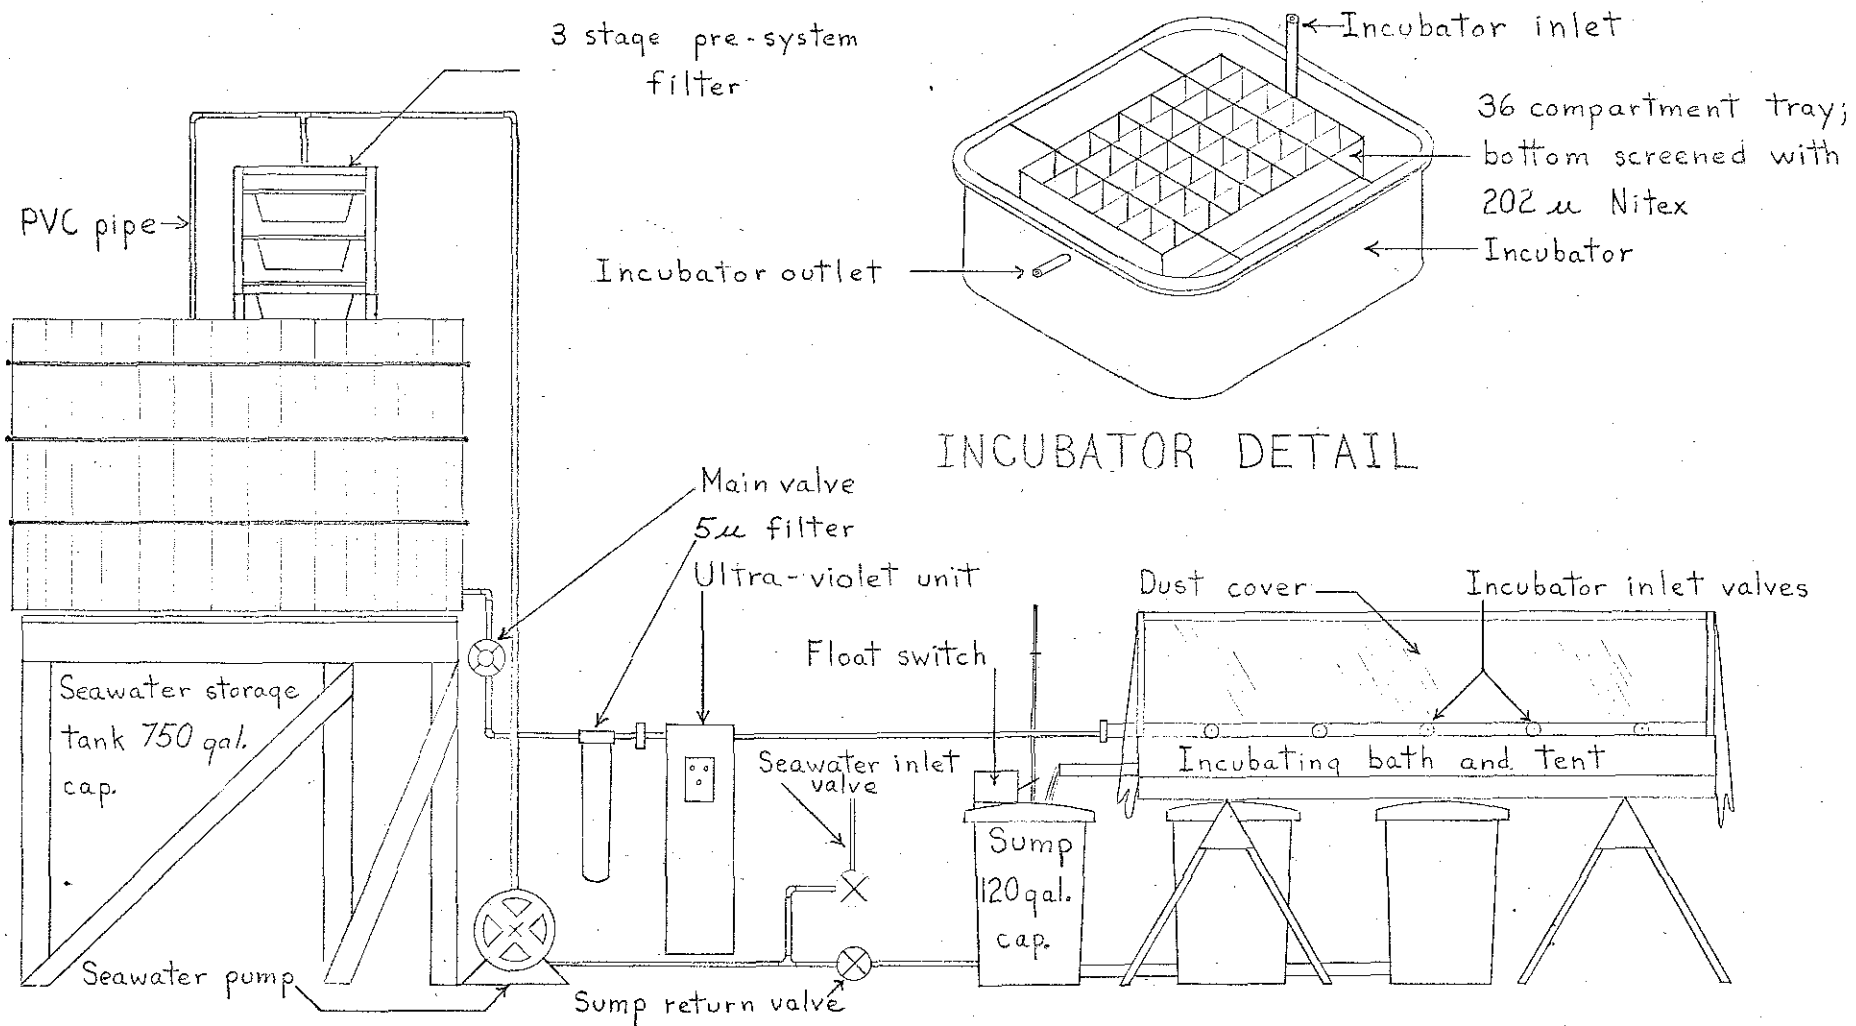 3 stage pre-system
filter
PVC pipe
Incubator inlet
36 compartment tray;
bottom screened with
202 µ Nitex
Incubator
Incubator outlet
INCUBATOR DETAIL
Main valve
5µ filter
Ultra-violet unit
Dust cover
Incubator inlet valves
Float switch
Seawater storage
tank 750 gal.
cap.
Seawater inlet
valve
Incubating bath and tent
Sump
120 gal.
cap.
Seawater pump
Sump return valve